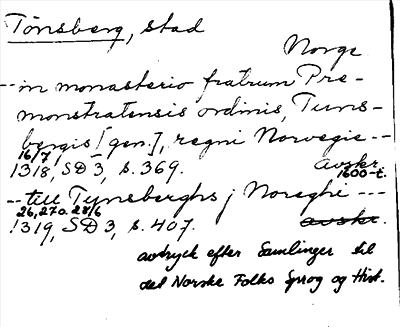 Tønsberg, stad
Norge
--in monasterio fratrum Pre-
monstratensis ordinis, Tuns-
bergis [gen.], regni Norvegie --
16/7 1318, SD 3, s. 369. Avskr. 1600-t.
-- till Tynsberghs j Noreghi ---
26, 27 o. 28/6 1319, SD 3, s. 407. avskr.
avtryck efter Samlinger til
det Norske Folks Sprog og Hist.